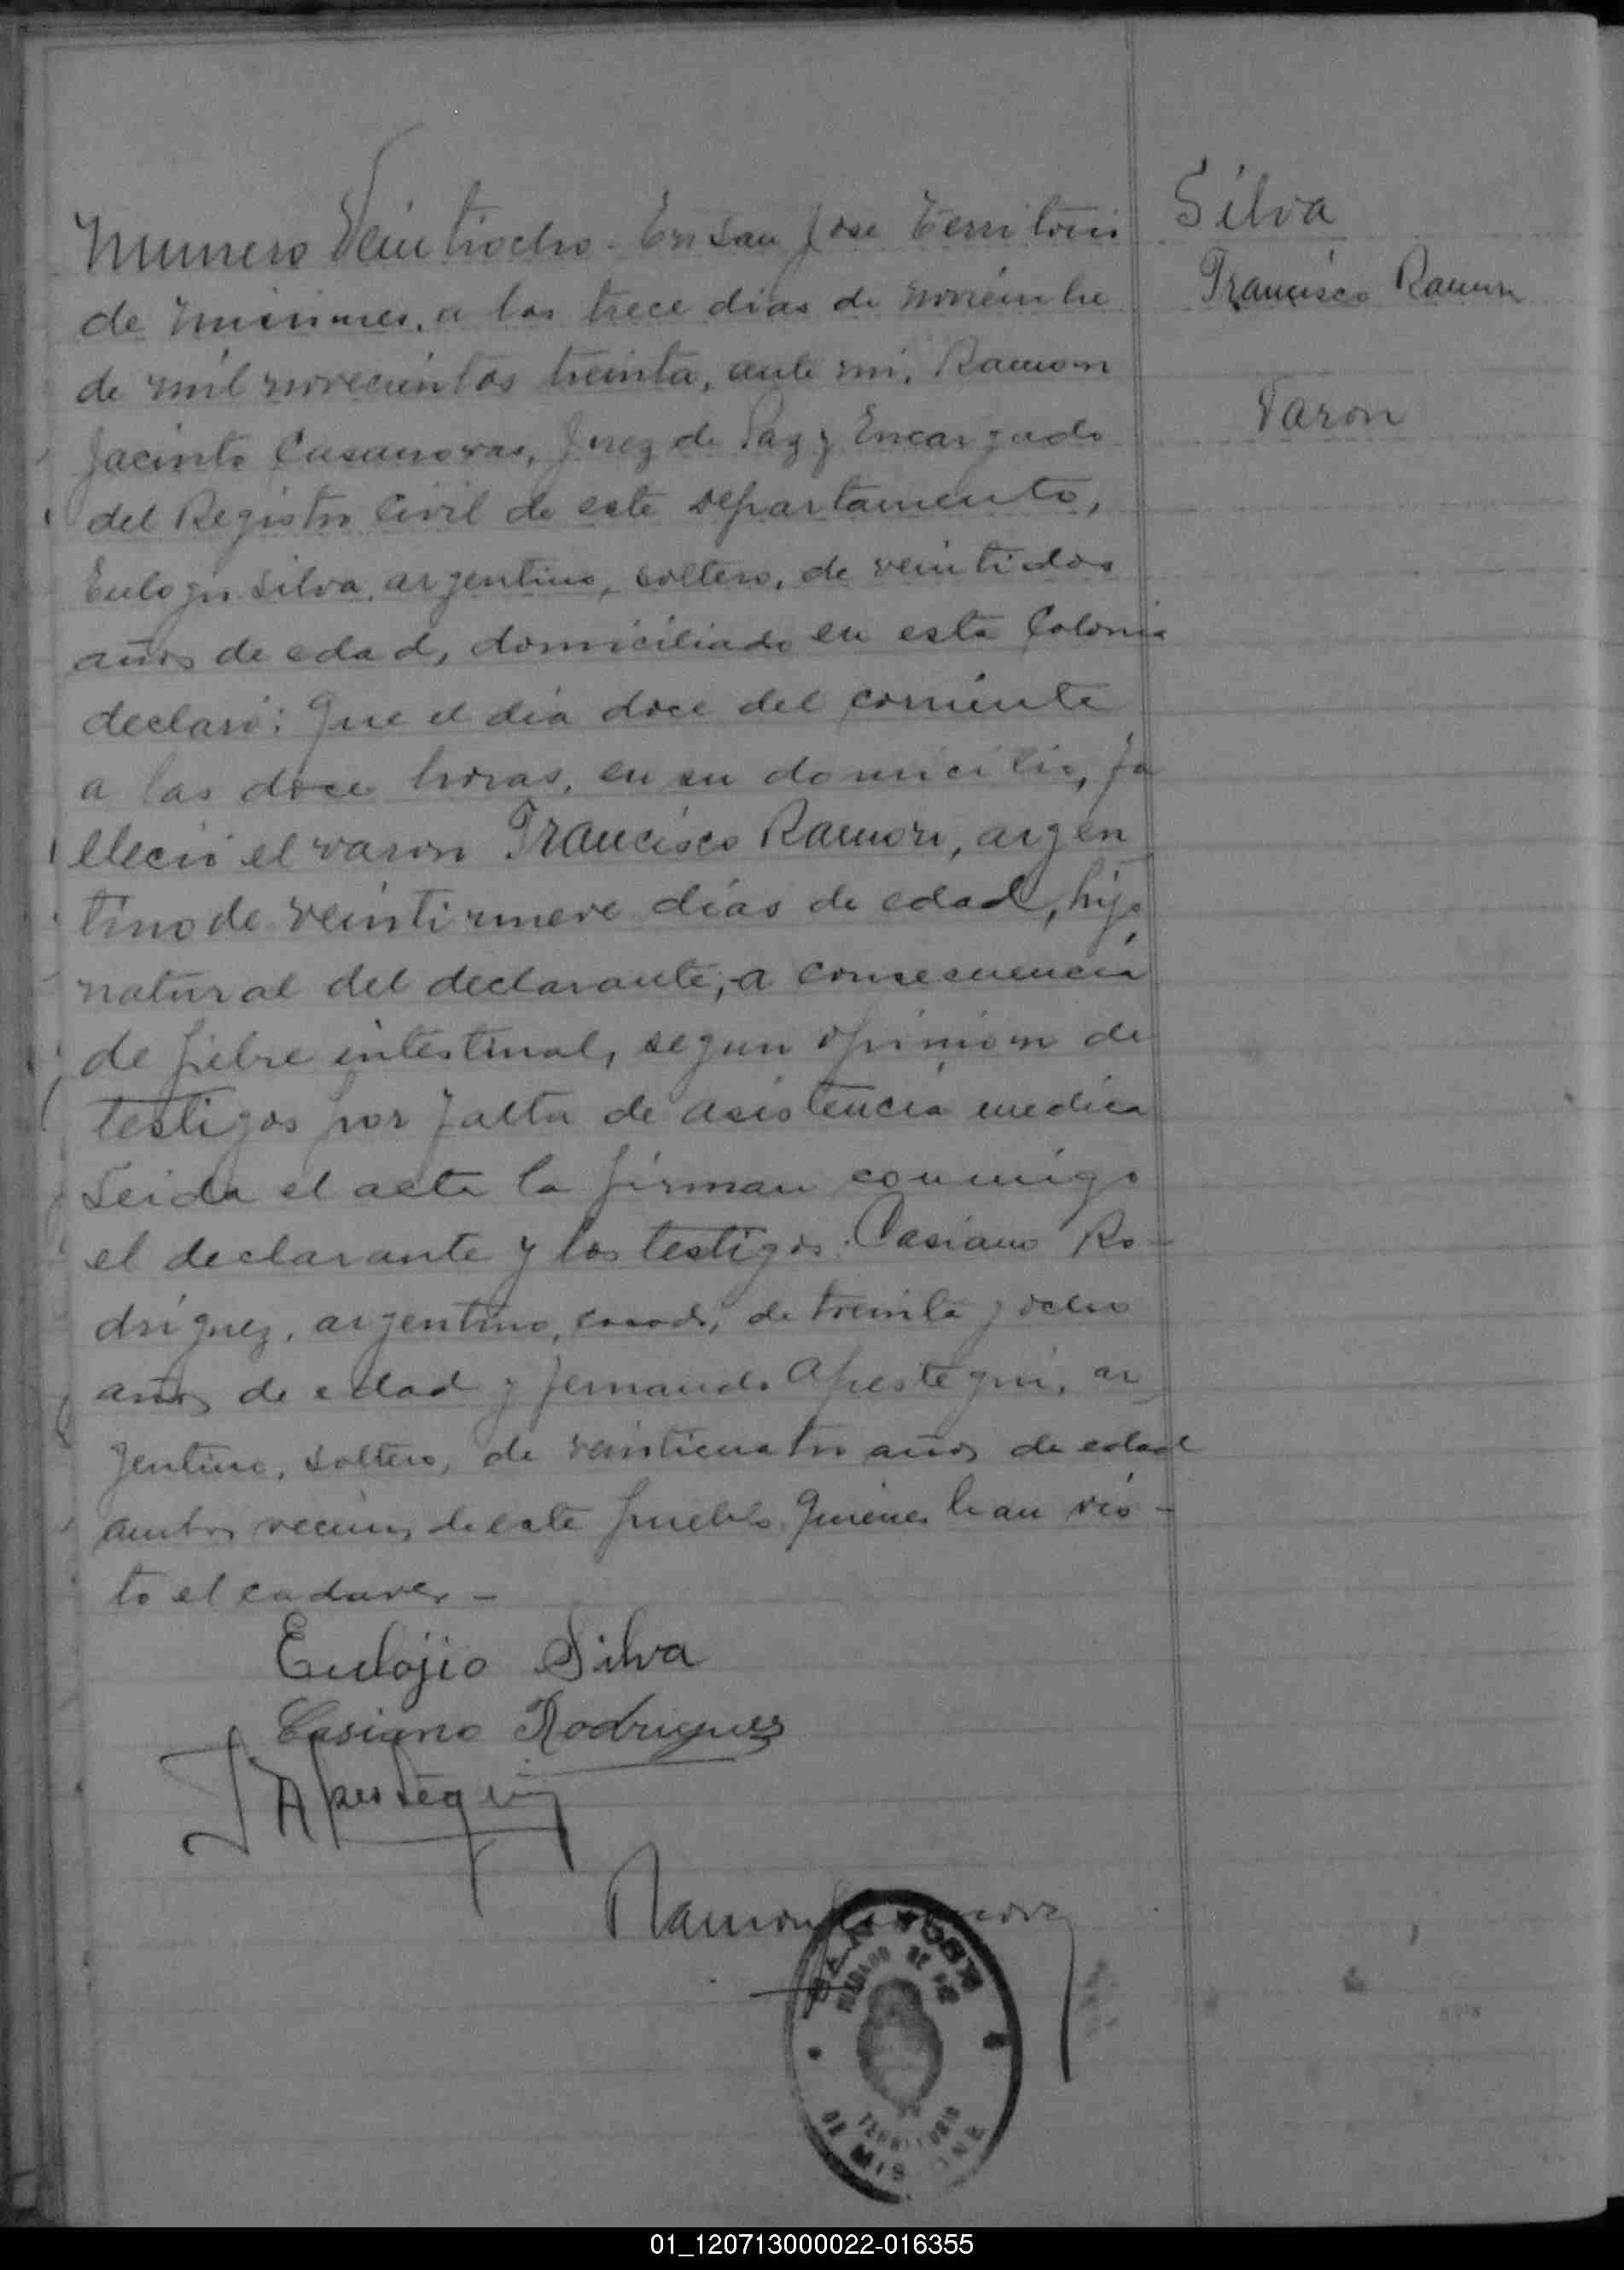 Numero Veintiocho - En San Jose Territorio
de Misiones, a los trece dias de noviembre
de mil novecientos treinta, ante mi, Ramon
Jacinto Casanovas, Juez de Paz y Encargado
del Registro Civil de este departamento,
Eulogio Silva, argentino, soltero, de veintidos
años de edad, domiciliado en esta Colonia
declaró: Que el dia doce del corriente
a las doce horas, en su domicilio, fa
lleció el varon Francisco Ramon, argen
tino de veintinueve dias de edad, hijo
natural del declarante, a consecuencia
de fiebre intestinal, segun opinion de
testigos por falta de asistencia medica
Leida el acta la firman conmigo
el declarante y los testigos Casiano Ro-
driguez, argentino, casado, de treinta y ocho
años de edad y Fernando Apestegui, ar
jentino, soltero, de veinticuatro años de edad
ambos vecinos de este pueblo quienes han vis-
to el cadaver -
Eulojio Silva
Casiano Rodriguez
F Apestegui
Ramon
SAN JOSE
JUZGADO DE PAZ
TERRITORIO
DE MISIONES
Silva
Francisco Ramon
Varon
01_120713000022-016355